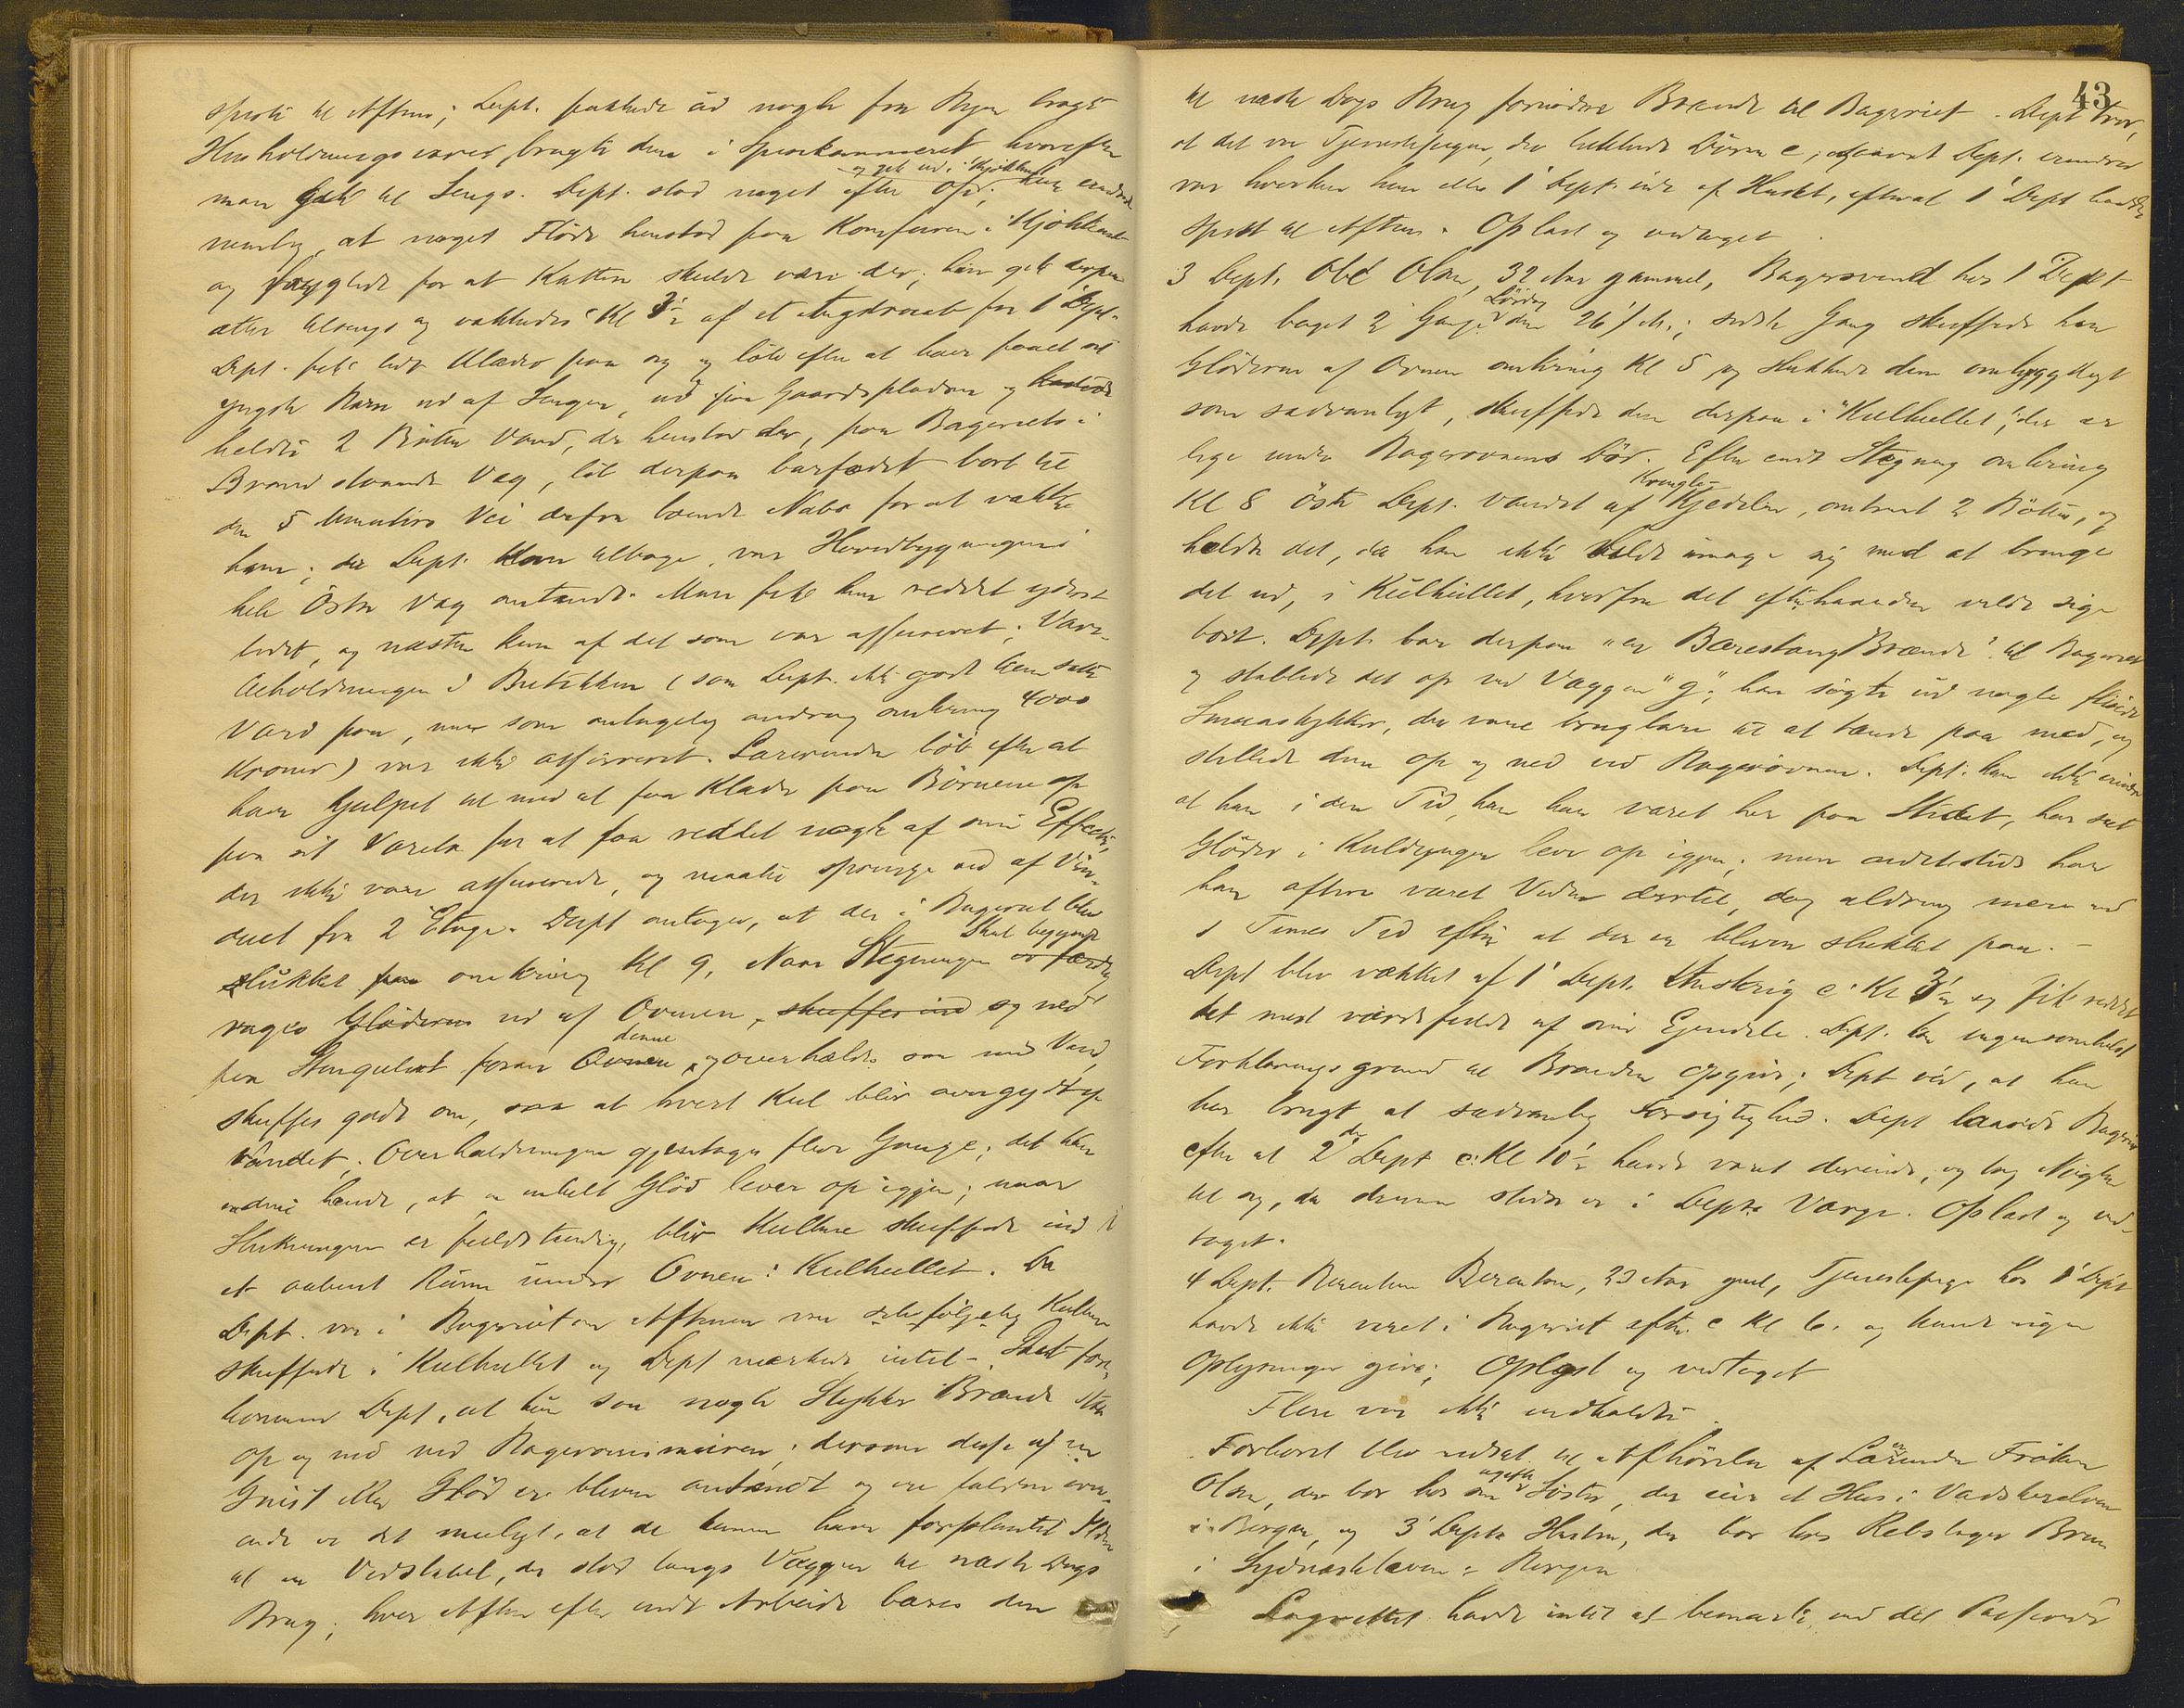 spist til Aften; Dept. pakkede ud nogle fra Byen bragte
Husholdningsvarer, bragte dem i Spisekammeret hvorefter
og gik ud i Kjøkkenet
man gik til Sengs. Dept. stod noget efter op; hun erindrede
nemlig, at noget Fløde henstod paa Komfuren i Kjøkkenet
og frygtede for at Katten skulde være der, hun gik derpaa
atter tilsengs og vaktedes Kl 3½ af et Angstraab fra 1 Dept.
Dept. fik lidt Klæder paa sig og løb efter at have faaet sit
yngste Barn ud af Sengen, ud paa Gaardspladsen og kastede
heldte 2 Bøtter Vand, der henstod der, paa Bageriets i
Brand staaende Væg, løb derpaa barfodet bort til
den 5 Minutters Vei derfra boende Nabo for at vække
ham; da Dept. kom tilbage, var Hovedbygningens
hele Østre Væg antændt. Man fik kun reddet yderst
lidet, og næsten kun af det som var assureret; Vare-
beholdningen i Butikken (som Dept. ikke godt kan sætte
Værd paa, men som antagelig androg omkring 4000
Kroner) var ikke assureret. Lærerinden løb efter at
have hjulpet til med at faa Klæder paa Børnene op
paa sit Værelse for at faa reddet nogle af sine Effecter,
der ikke vare assurerede, og maatte springe ud af Vin-
duet fra 2 Etage. Dept antager, at der i Bageriet blev
skal begynde
slukket paa omkring Kl 9. Naar Stegningen er færdig
rages Gløderne ud af Ovnen, skuffes ind og ned
denne
paa Stengulvet foran Ovnen, og overhældes saa med Vand,
skuffes godt om, saa at hvert Kul blir overgydt af
Vandet; Overhældningen gjentages flere Gange; det kan
endnu hænde, at en enkelt Glød lever op igjen; naar
Slukningen er fuldstændig, blir Kullene skuffede ind i
et aabent Rum under Ovnen: Kulhullet. Da
Dept. var i Bageriet om Aftenen var selvfølgelig Kullene
skuffede i Kulhullet og Dept mærkede intet. Det fore-
kommer Dept, at hun saa nogle Stykker Brænde staa
op og ned ved Bagerovnsmuren; dersom disse af en
Gnist eller Glød er bleven antændt og ere faldne over-
ende er det muligt, at de kunne have forplantet Ilden
til en Vedstabel, der stod langs Væggen til næste Dags
Brug; hver Aften efter endt Arbeide bæres den
43
til næste Dags Brug fornødne Brænde til Bageriet. Dept tror,
at det var Tjenestepigen, der lukkede Døren c; saavidt Dept. erindrer
var hverken hun eller 1 Dept. ude af Huset, efterat 1 Dept havde
spist til Aften. Oplæst og vedtaget.
3 Dept. Ole Olsen, 32 Aar gammel, Bagersvend hos 1 Dept
Lørdag
havde baget 2 Gange den 26/ ds.; sidste Gang skuffede han
Gløderne af Ovnen omkring Kl 5 og slukkede dem omhyggeligt
som sædvanligt, skuffede dem derpaa i "Kulhullet", der er
lige under Bagerovnens Dør. Efter endt Stegning omkring
Kringle-
Kl 8 øste Dept. Vandet af Kjedelen, omtrent 2 Bøtter, og
heldte det, da han ikke vilde umage sig med at bringe
det ud, i Kulhullet, hvorfra det efterhaanden vilde sige
bort. Dept. bar derpaa "en Bærestang Brænde" til Bageriet
og stablede det op ved Væggen "g"; han søgte ud nogle fliede
Smaastykker, der vare brugbare til at tænde paa med, og
stillede dem op og ned ved Bagerovnen. Dept. kan ikke erindre
at han i den Tid, han har været her paa Stedet, har seet
Gløder i Kuldyngen leve op igjen; men andetsteds har
han oftere været Vidne dertil, dog aldrig mere end
1 Times Tid efter at der er bleven slukket paa. -
Dept blev vækket af 1 Dept. Anskrig c. Kl 3½ og fik reddet
det mest værdifulde af sine Eiendele. Dept. kan ingensomhelst
Forklaringsgrund til Branden opgive; Dept véd, at han
har brugt al sædvanlig Forsigtighed. Dept laasede Bageriet
efter at 2den Dept c. Kl 10½ havde været derinde, og tog Nøglen
til sig, da denne stedse er i Depts Værge. Oplæst og ved-
taget.
4 Dept. Berentine Berentsen, 23 Aar gml, Tjenestepige hos 1 Dept
havde ikke været i Bageriet efter c Kl 6. og kunde ingen
Oplysninger give; Oplæst og vedtaget
Flere var ikke indkaldte.
Forhøret blev udsat til Afhørelse af Lærerinden Frøken
ugifte
Olsen, der bor hos sin Søster, der eier et Hus i Vadskerelven
i Bergen, og 3 Depts Hustru, der bor hos Rebslager Brun
i Sydneskleven i Bergen
Lagrettet havde intet at bemærke ved det Passerede